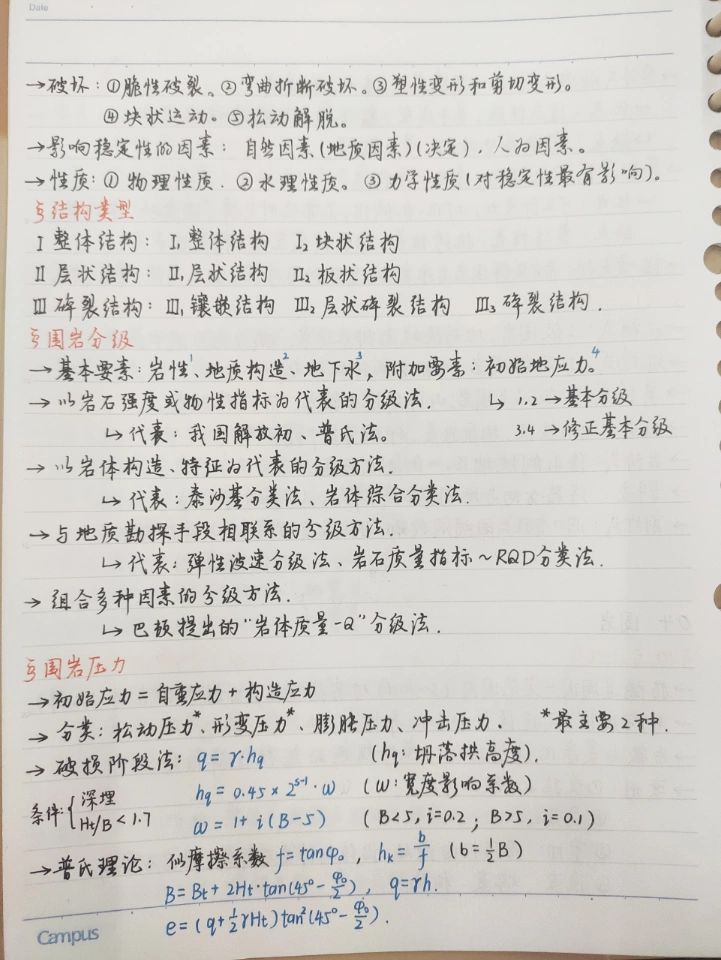 Date
→破坏：①脆性破裂。②弯曲折断破坏。③塑性变形和剪切变形。
④块状运动。⑤松动解脱。
→影响稳定性的因素：自然因素(地质因素)(决定)，人为因素。
→性质：①物理性质．②水理性质。③力学性质(对稳定性最有影响)。
§结构类型
Ⅰ 整体结构：Ⅰ₁整体结构 Ⅰ₂块状结构
Ⅱ 层状结构：Ⅱ₁层状结构 Ⅱ₂板状结构
Ⅲ 碎裂结构：Ⅲ₁镶嵌结构 Ⅲ₂层状碎裂结构 Ⅲ₃碎裂结构．
§围岩分级
→基本要素：岩性¹、地质构造²、地下水³，附加要素：初始地应力⁴。
→以岩石强度或物性指标为代表的分级法． ↳ 1.2→基本分级
↳代表：我国解放初、普氏法。 3.4→修正基本分级
→以岩体构造、特征为代表的分级方法．
↳代表：泰沙基分类法、岩体综合分类法．
→与地质勘探手段相联系的分级方法．
↳代表：弹性波速分级法、岩石质量指标~RQD分类法．
→组合多种因素的分级方法．
↳巴顿提出的"岩体质量-Q"分级法．
§围岩压力
→初始应力=自重应力+构造应力
→分类：松动压力*、形变压力*、膨胀压力、冲击压力． *最主要2种．
→破损阶段法：q=γ·hq (hq：坍落拱高度)．
条件：{深埋 hq=0.45×2^(s-1)·ω (ω：宽度影响系数)
Ht/B<1.7 ω=1+i(B-5) (B<5，i=0.2；B>5，i=0.1)
→普氏理论：似摩擦系数f=tanφ₀，hk=b/f (b=½B)
B=Bt+2Ht·tan(45°-φ₀/2)，q=γh.
e=(q+½γHt)tan²(45°-φ₀/2).
Campus